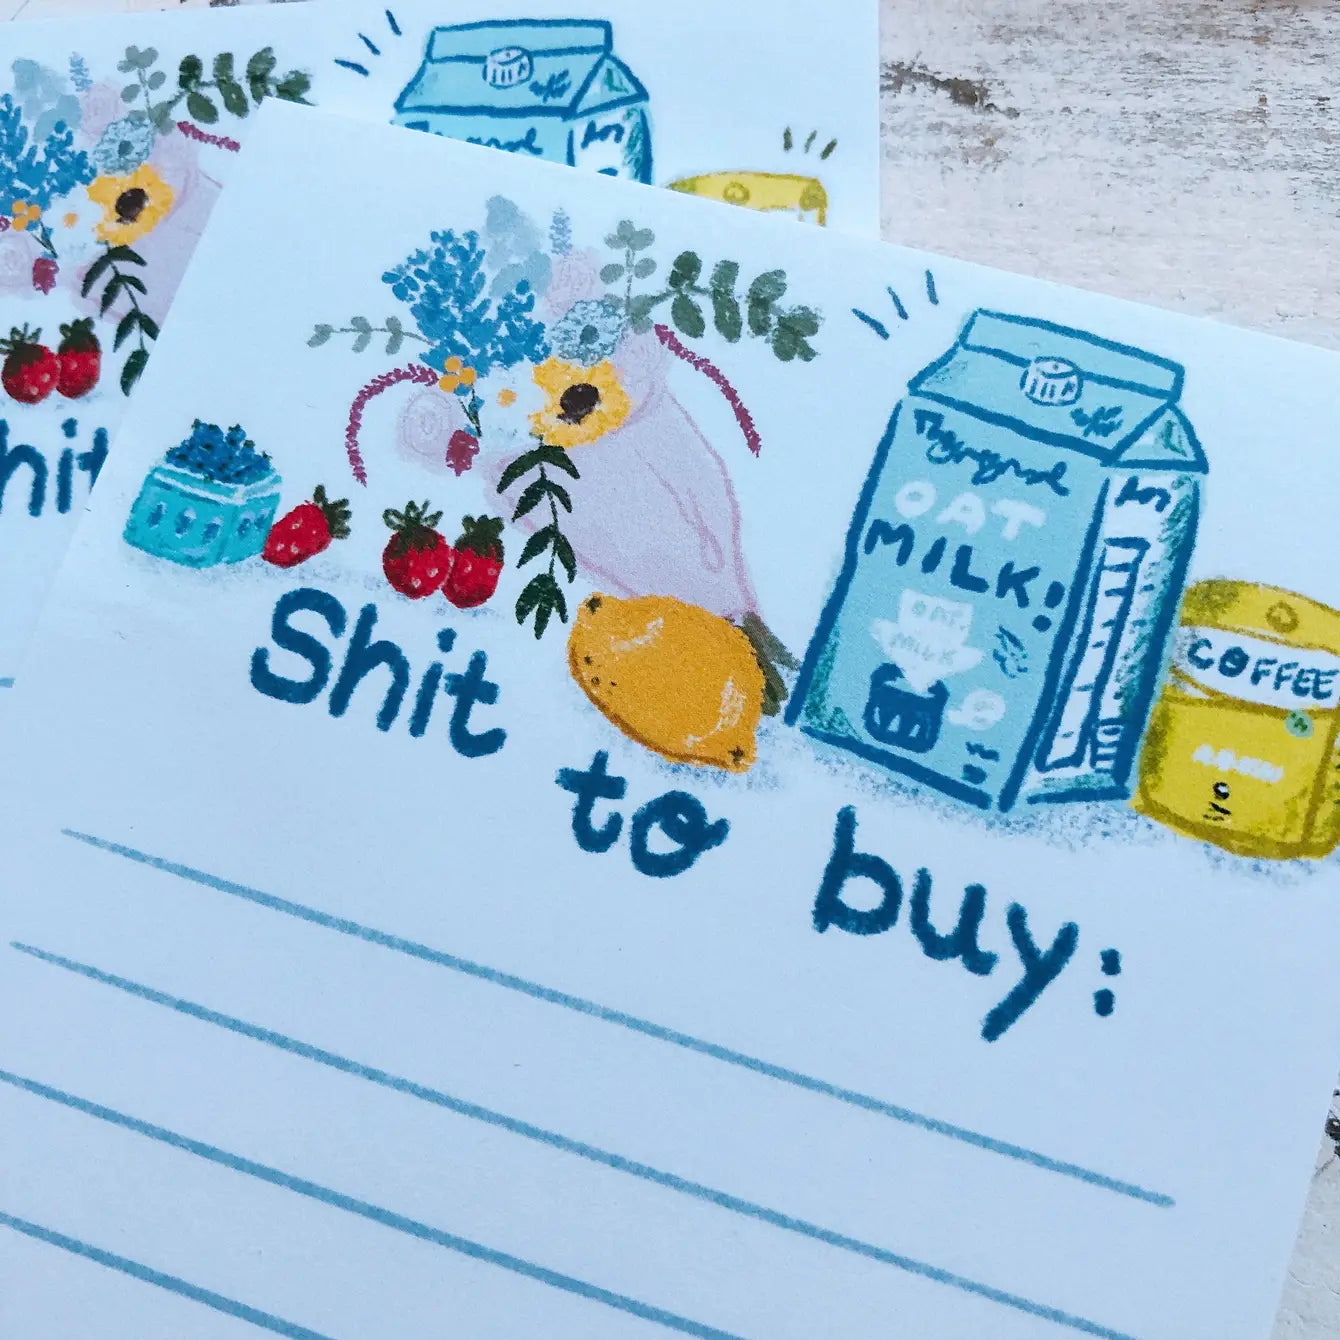 OAT
MILK!
OAT
MILK
COFFEE
Shit to buy:
hit